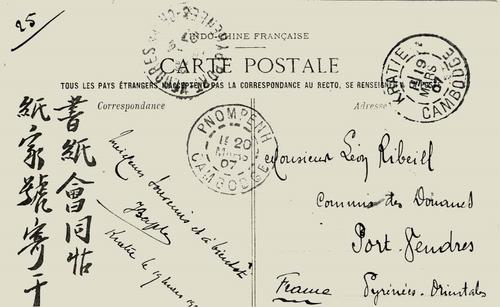 25
INDO-CHINE FRANÇAISE
CARTE POSTALE
TOUS LES PAYS ÉTRANGERS N'ACCEPTENT PAS LA CORRESPONDANCE AU RECTO, SE RENSEIGNER
Correspondance
Adresse
KRATIE
19
MARS
07
CAMBODGE
PNOMPENH
20
MARS
07
CAMBODGE
PORT-VENDRES
PYRÉNÉES-OR
書紙會同帖
紙家號寄干
souvenirs et à bientôt
Kratie le 19 mars
Monsieur Léon Ribeill
Commis des Douanes
Port-Vendres
France Pyrénées-Orientales